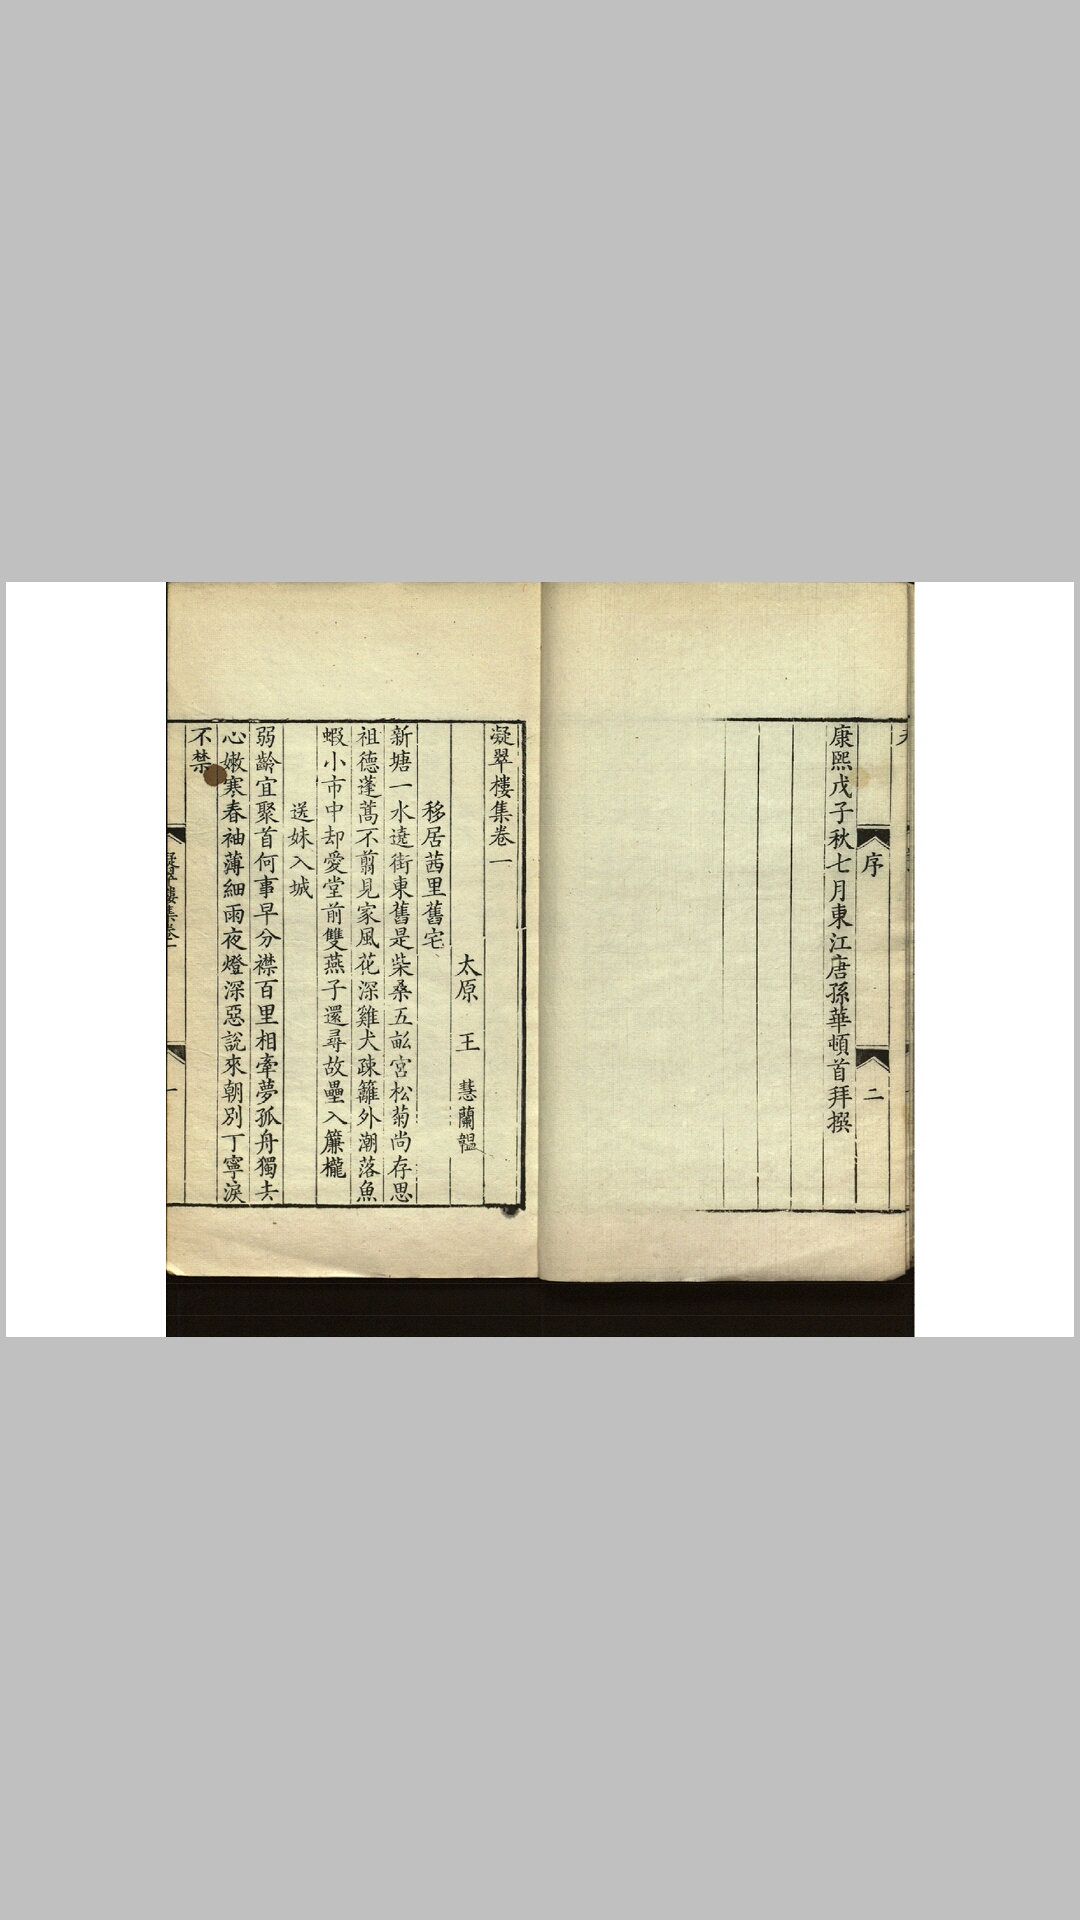 序
二
康熙戊子秋七月東江唐孫華頓首拜撰
凝翠樓集卷一
太原 王 慧蘭韞
移居茜里舊宅
新塘一水遶街東舊是柴桑五畝宮松菊尚存思
祖德蓬蒿不翦見家風花深雞犬疎籬外潮落魚
蝦小市中却愛堂前雙燕子還尋故壘入簾櫳
送妹入城
弱齡宜聚首何事早分襟百里相牽夢孤舟獨去
心嫩寒春袖薄細雨夜燈深惡說來朝別丁寧淚
不禁
凝翠樓集卷一
一